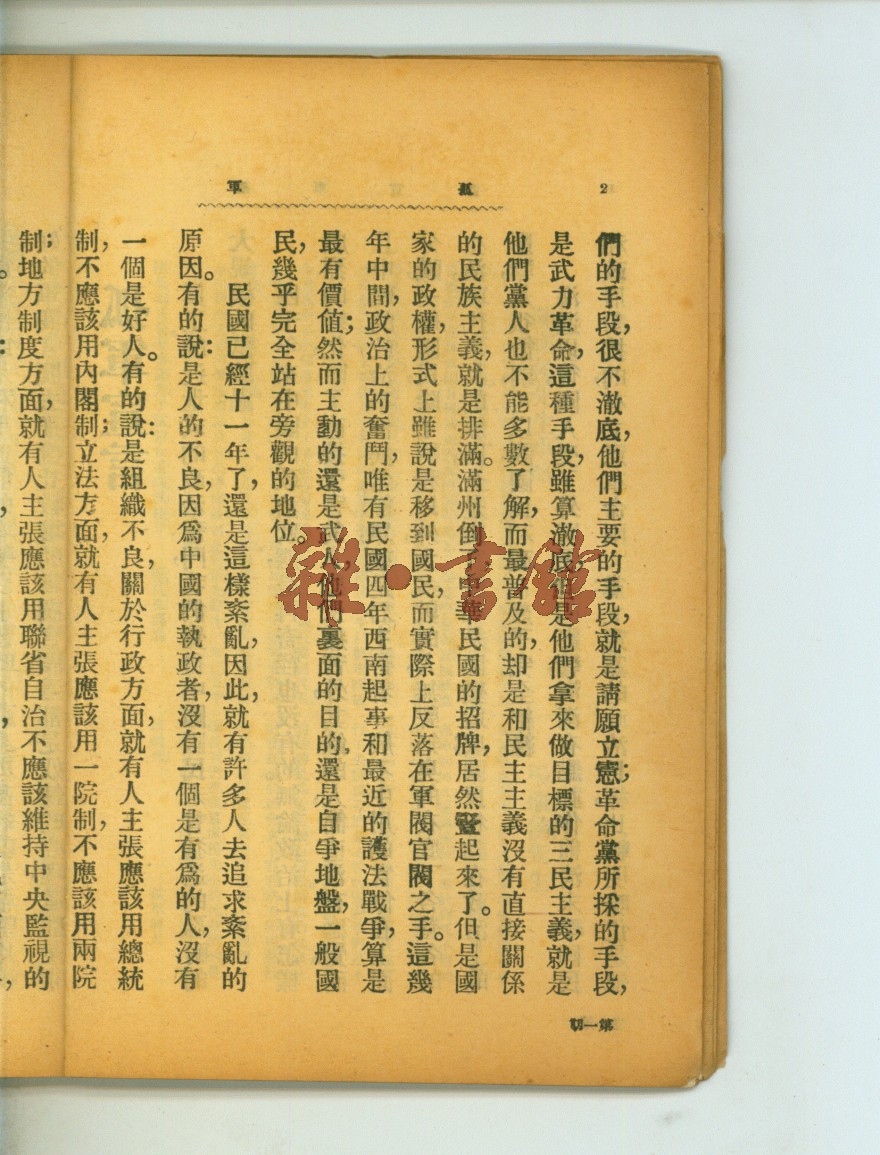 2
孤軍
們的手段，很不澈底，他們主要的手段，就是請願立憲；革命黨所採的手段，
是武力革命，這種手段，雖算澈底，但是他們拿來做目標的三民主義，就是
他們黨人也不能多數了解，而最普及的，却是和民主主義沒有直接關係
的民族主義，就是排滿。滿州倒了，中華民國的招牌，居然豎起來了。但是國
家的政權，形式上雖說是移到國民，而實際上反落在軍閥官閥之手。這幾
年中間，政治上的奮鬥，唯有民國四年西南起事和最近的護法戰爭，算是
最有價値；然而主動的還是武人，他們裏面的目的，還是自爭地盤，一般國
民，幾乎完全站在旁觀的地位。
民國已經十一年了，還是這樣紊亂，因此，就有許多人去追求紊亂的
原因。有的說：是人的不良，因爲中國的執政者，沒有一個是有爲的人，沒有
一個是好人。有的說：是組織不良，關於行政方面，就有人主張應該用總統
制，不應該用內閣制；立法方面，就有人主張應該用一院制，不應該用兩院
制；地方制度方面，就有人主張應該用聯省自治不應該維持中央監視的
第一期
雜·書館